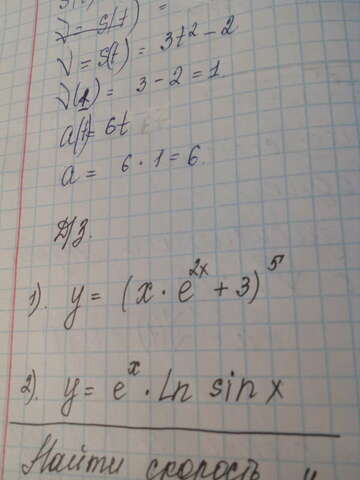 V = S(t) =
V = S(t) = 3t² - 2
V(1) = 3 - 2 = 1.
a(t) = 6t
a = 6 · 1 = 6.
Д/З.
1). y = (x · e^{2x} + 3)^5
2). y = e^x · Ln sin x
Найти скорость и